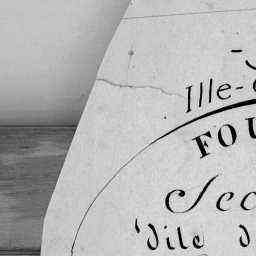 Ille-
FOU
Sec
'dile d